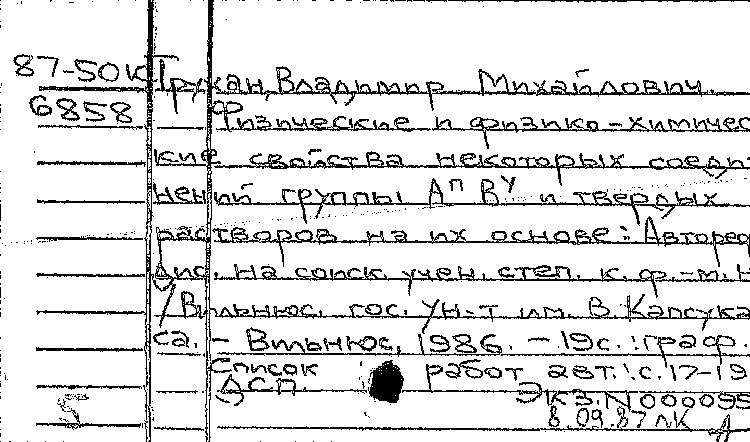 87-50к Трухан, Владимир Михайлович.
6858 Физические и физико-химичес
кие свойства некоторых соеди
нений группы АᴵᴵВⱽ и твердых
растворов на их основе: Автореф
дис. на соиск. учен. степ. к. ф.-м. н
/Вильнюс. гос. ун-т им. В. Капсука
са. - Вильнюс, 1986. - 19с. : граф.
Список работ авт.: с. 17-19
ДСП. Экз. N 000095
5 8.09.87 ЛК